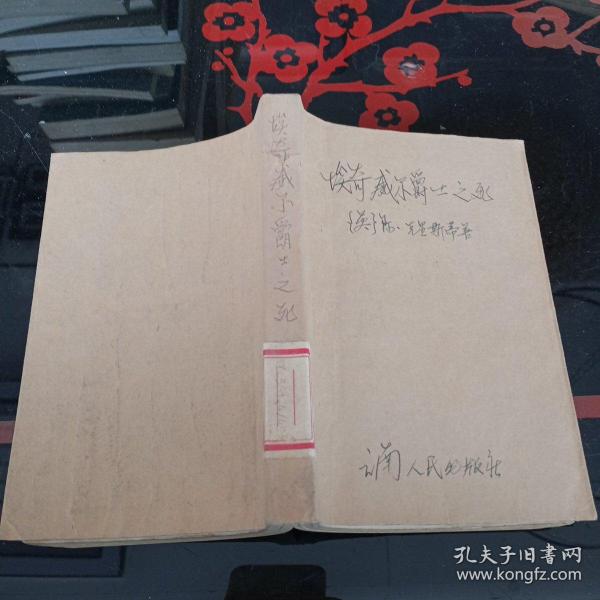 埃奇威尔爵士之死
埃奇威尔爵士之死
[英]阿·克里斯蒂著
云南人民出版社
孔夫子旧书网
www.kongfz.com